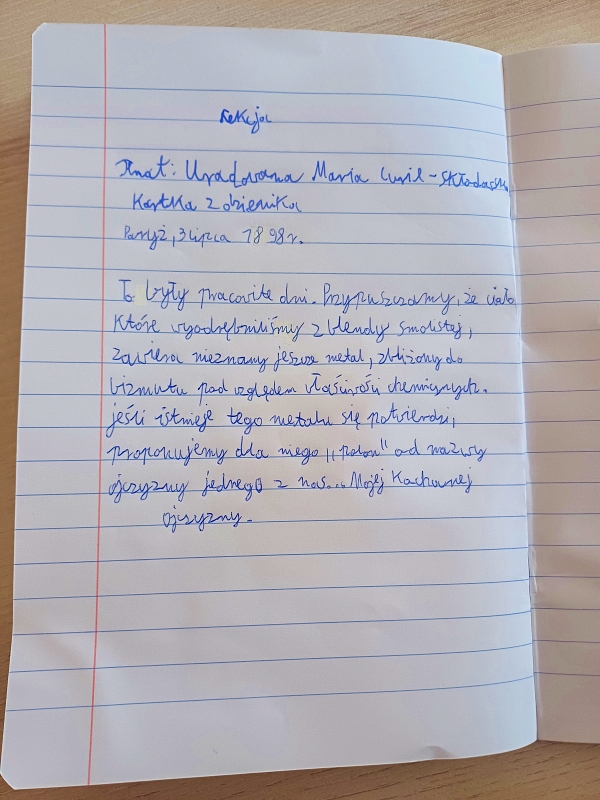 Lekcja
Temat: Uradowana Maria Curil-Skłodowska
Kartka z dziennika
Paryż, 3 lipca 1898r.
To były pracowite dni. Przypuszczamy, że ciało
które wyodrębniliśmy z blendy smolistej,
zawiera nieznany jeszcze metal, zbliżony do
bizmutu pod względem właściwości chemicznych.
jeśli istnieje tego metalu się potwierdzi,
proponujemy dla niego „polon" od nazwy
ojczyzny jednego z nas... Mojej Kochanej
ojczyzny.